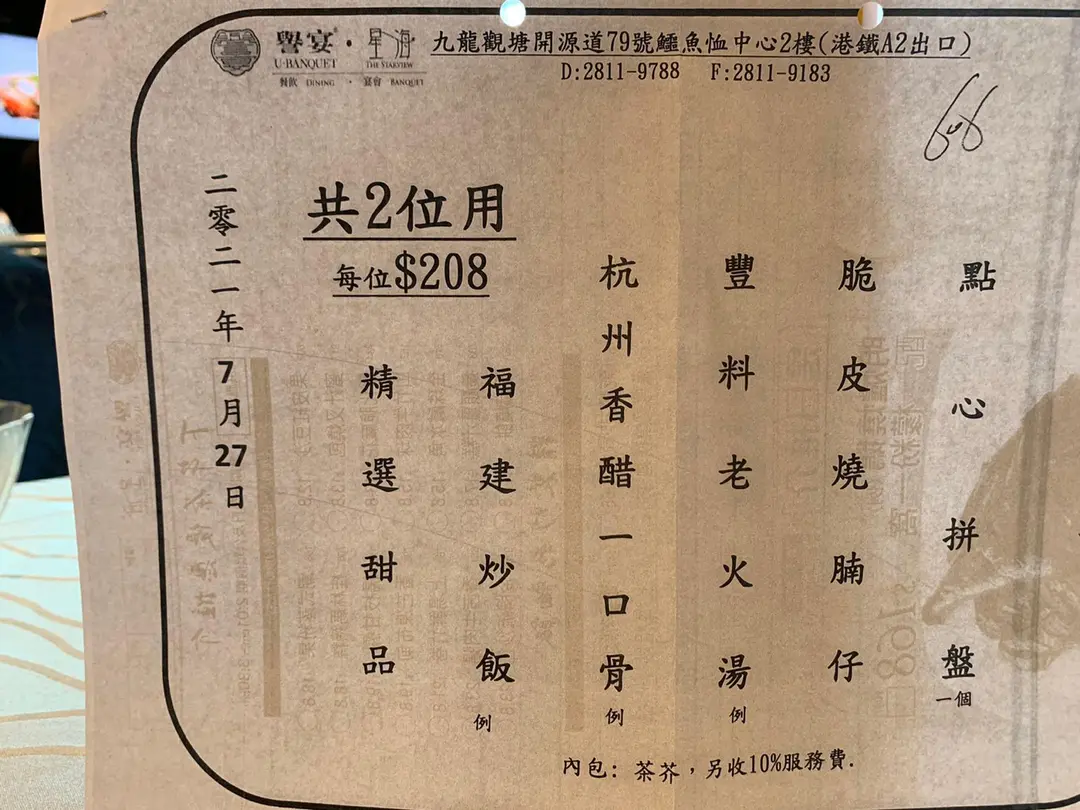 譽宴・星海
U-BANQUET THE STARVIEW
餐飲 DINING・宴會 BANQUET
九龍觀塘開源道79號鱷魚恤中心2樓(港鐵A2出口)
D:2811-9788 F:2811-9183
點心拼盤 一個
脆皮燒腩仔
豐料老火湯 例
杭州香醋一口骨 例
福建炒飯 例
精選甜品
共2位用
每位$208
二零二一年7月27日
內包: 茶芥，另收10%服務費.